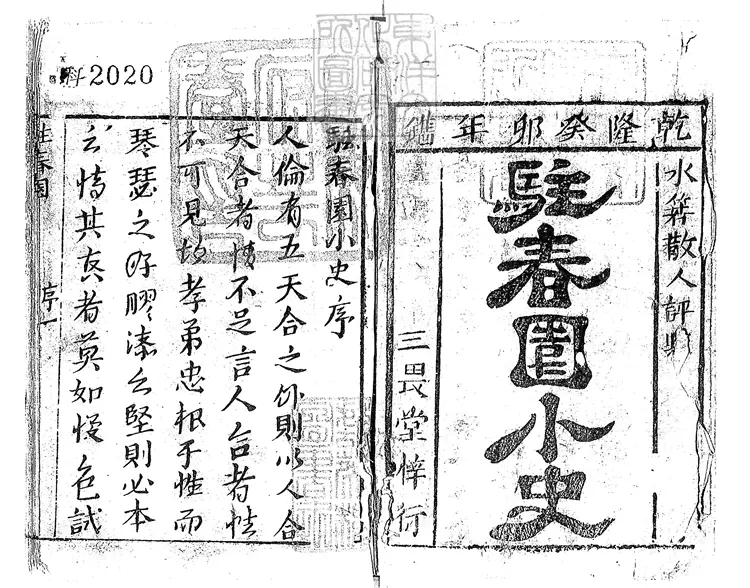 乾隆癸卯年鐫
水箬散人評
駐春園小史
三畏堂梓行
2020
駐春園小史序
人倫有五天合之外則以人合
天合者情不足言人合者性
不可見故孝弟忠根于性而
琴瑟之好膠漆之堅則必本
之情其真者莫如色試
駐春園 序一